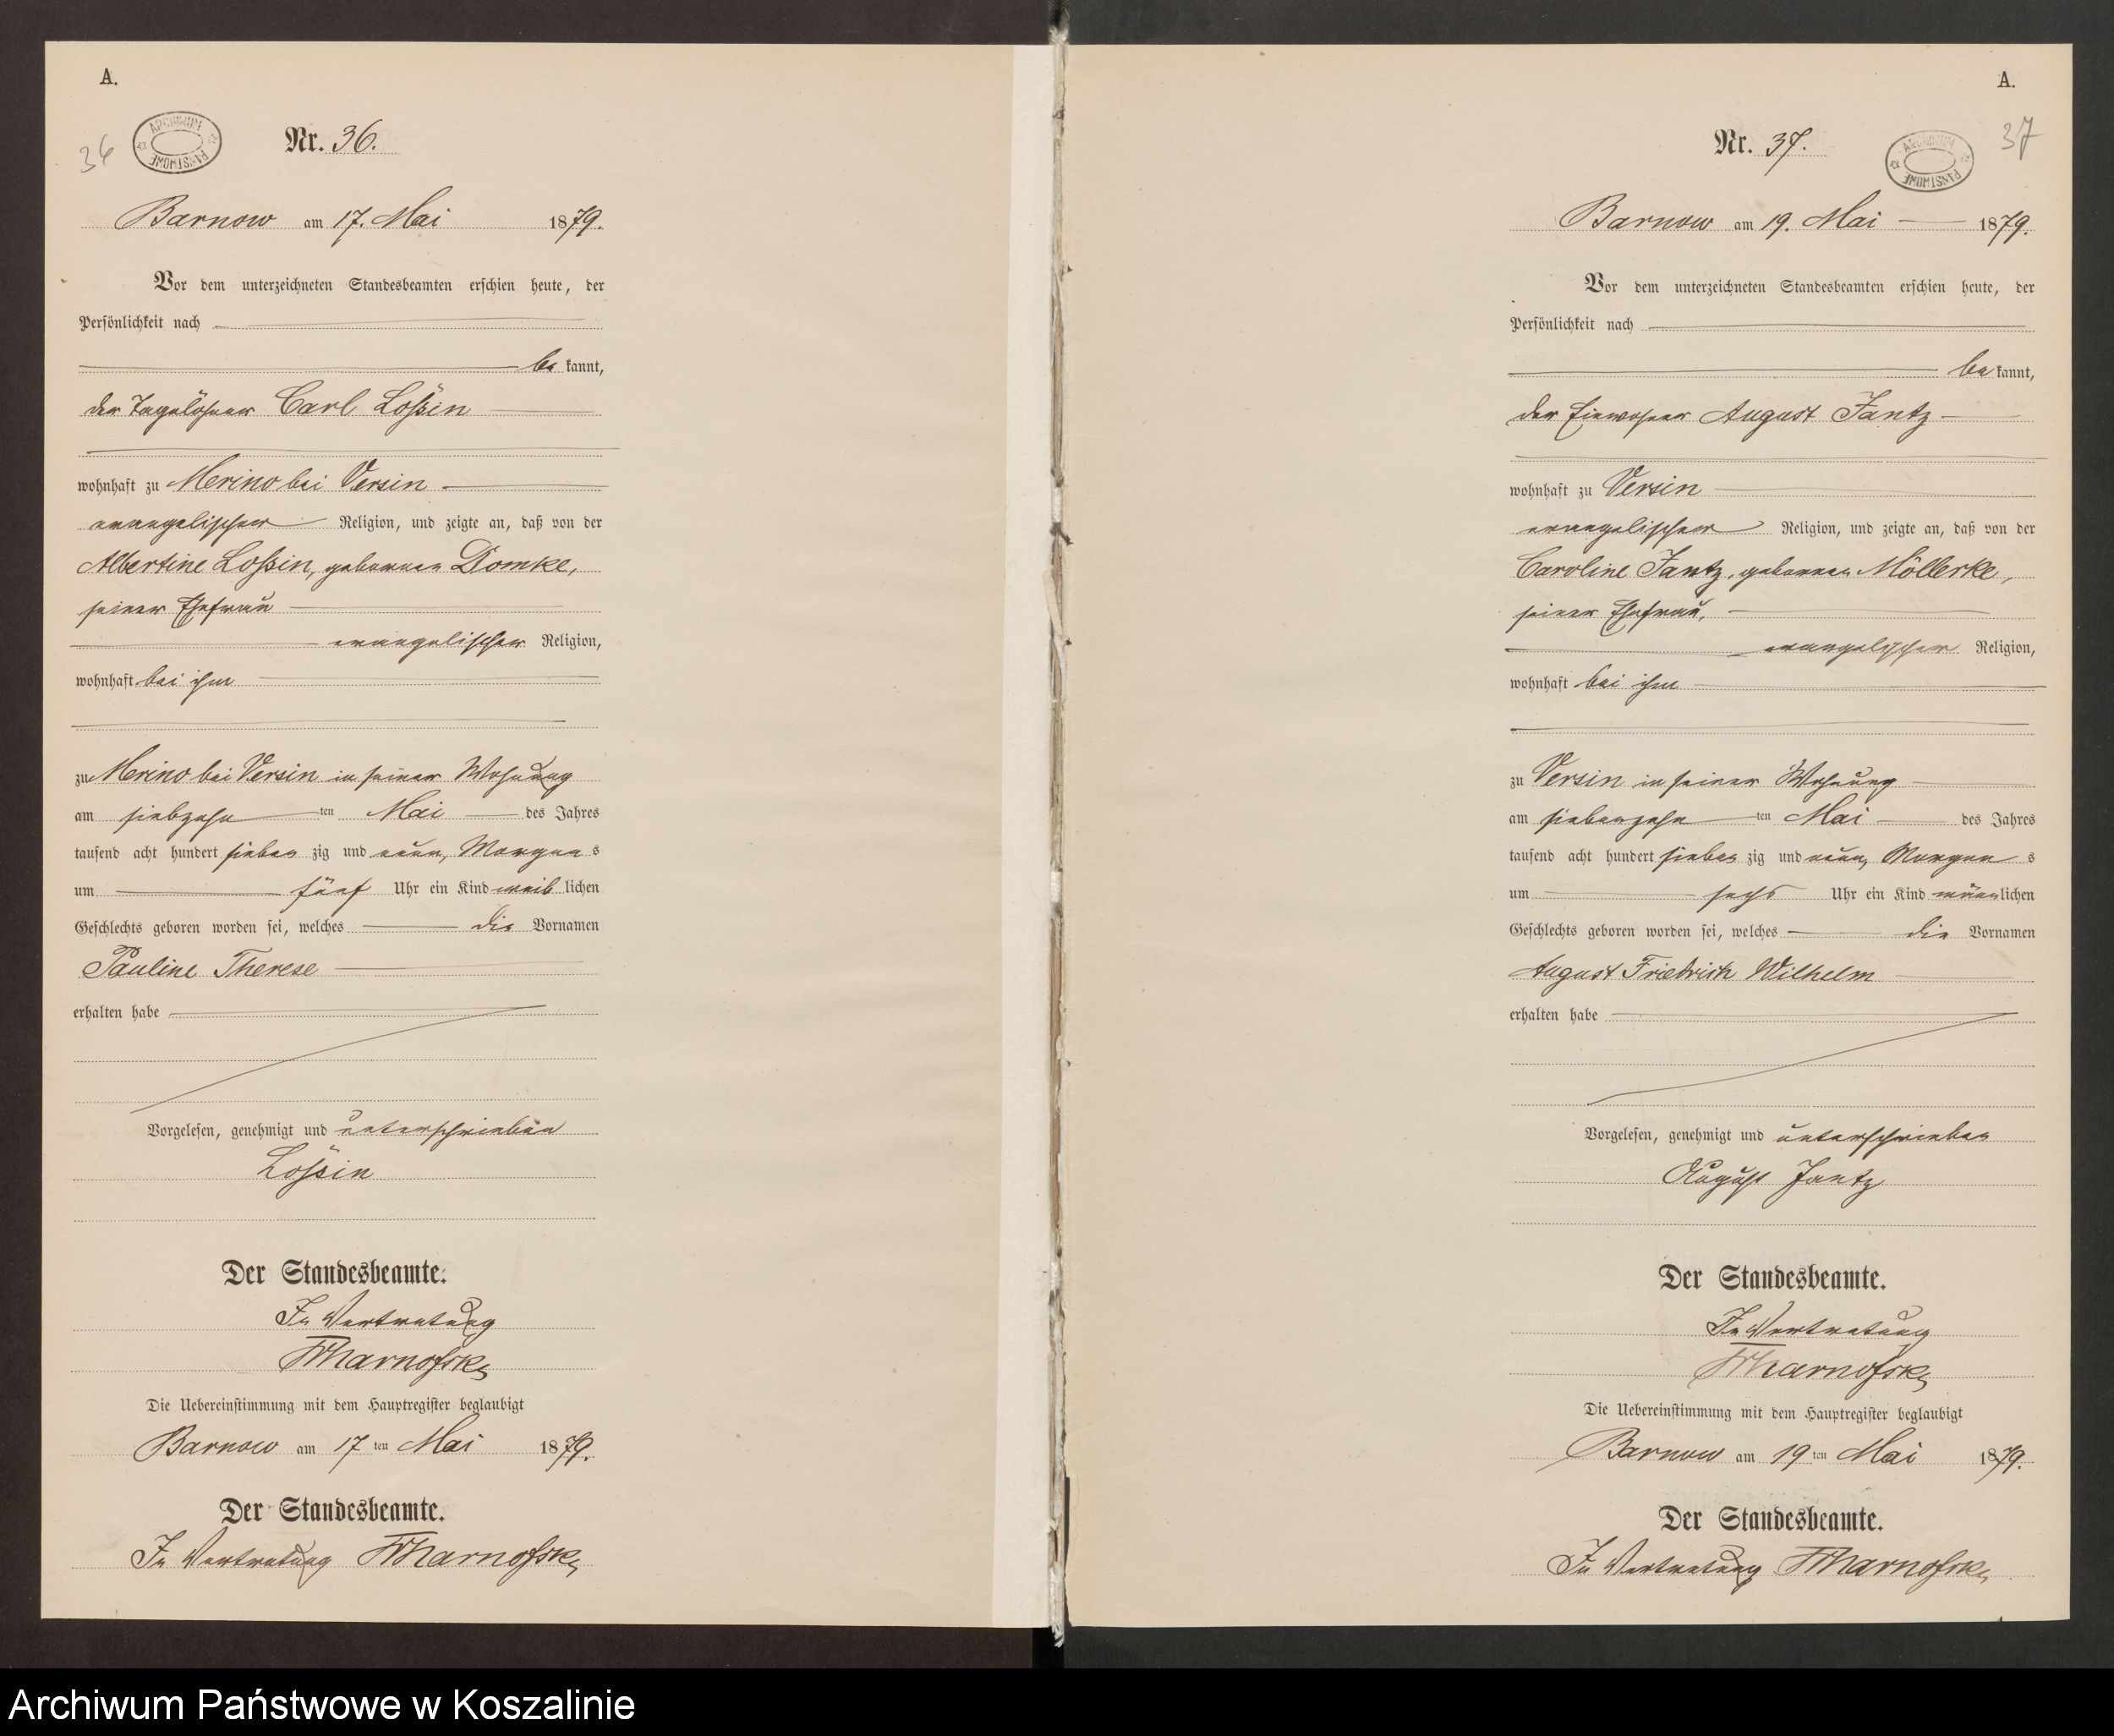 A.
36
ARCHIWUM PAŃSTWOWE
Nr. 36.
Barnow am 17. Mai 1879.
Vor dem unterzeichneten Standesbeamten erschien heute, der
Persönlichkeit nach
be kannt,
der Tagelöhner Carl Loßin
wohnhaft zu Merino bei Versin
evangelischer Religion, und zeigte an, daß von der
Albertine Loßin, geborenen Domke,
seiner Ehefrau
evangelischer Religion,
wohnhaft bei ihm
zu Merino bei Versin in seiner Wohnung
am siebzehn ten Mai des Jahres
tausend acht hundert sieben zig und neun, Morgens
um fünf Uhr ein Kind weib lichen
Geschlechts geboren worden sei, welches die Vornamen
Pauline Therese
erhalten habe
Vorgelesen, genehmigt und unterschrieben
Loßin
Der Standesbeamte.
In Vertretung
Die Uebereinstimmung mit dem Hauptregister beglaubigt
Barnow am 17 ten Mai 1879.
Der Standesbeamte.
In Vertretung
A.
37
ARCHIWUM PAŃSTWOWE
Nr. 37.
Barnow am 19. Mai 1879.
Vor dem unterzeichneten Standesbeamten erschien heute, der
Persönlichkeit nach
be kannt,
der Einwohner August Jantz
wohnhaft zu Versin
evangelischer Religion, und zeigte an, daß von der
Caroline Jantz, geborenen Möllerke,
seiner Ehefrau,
evangelischer Religion,
wohnhaft bei ihm
zu Versin in seiner Wohnung
am siebenzehn ten Mai des Jahres
tausend acht hundert sieben zig und neun, Morgen s
um sechs Uhr ein Kind männlichen
Geschlechts geboren worden sei, welches die Vornamen
August Friedrich Wilhelm
erhalten habe
Vorgelesen, genehmigt und unterschrieben
August Jantz
Der Standesbeamte.
In Vertretung
Die Uebereinstimmung mit dem Hauptregister beglaubigt
Barnow am 19 ten Mai 1879.
Der Standesbeamte.
In Vertretung
Archiwum Państwowe w Koszalinie